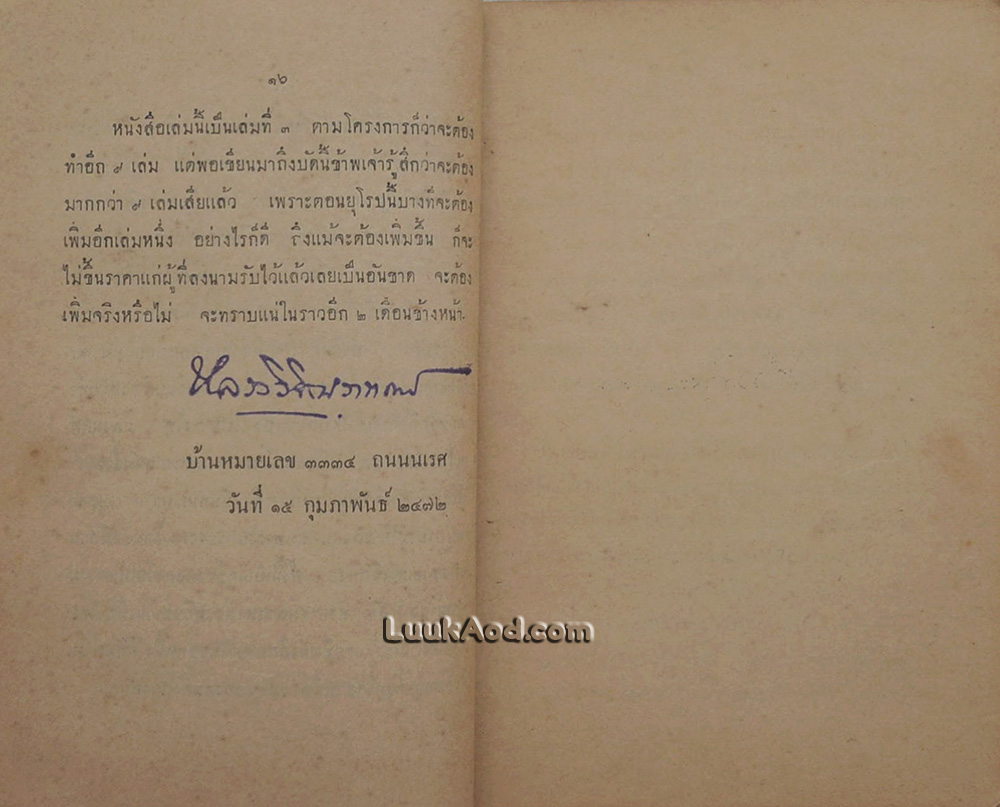 ๑๖
หนังสือเล่มนี้เป็นเล่มที่ ๓ ตามโครงการก็ว่าจะต้อง
ทำอีก ๙ เล่ม แต่พอเขียนมาถึงบัดนี้ข้าพเจ้ารู้สึกว่าจะต้อง
มากกว่า ๙ เล่มเสียแล้ว เพราะตอนยุโรปนี้บางทีจะต้อง
เพิ่มอีกเล่มหนึ่ง อย่างไรก็ดี ถึงแม้จะต้องเพิ่มขึ้น ก็จะ
ไม่ขึ้นราคาแก่ผู้ที่ลงนามรับไว้แล้วเลยเป็นอันขาด จะต้อง
เพิ่มจริงหรือไม่ จะทราบแน่ในราวอีก ๒ เดือนข้างหน้า.
หลวงวิจิตรวาทการ
บ้านหมายเลข ๓๓๓๔ ถนนนเรศ
วันที่ ๑๕ กุมภาพันธ์ ๒๔๗๒
LuukAod.com